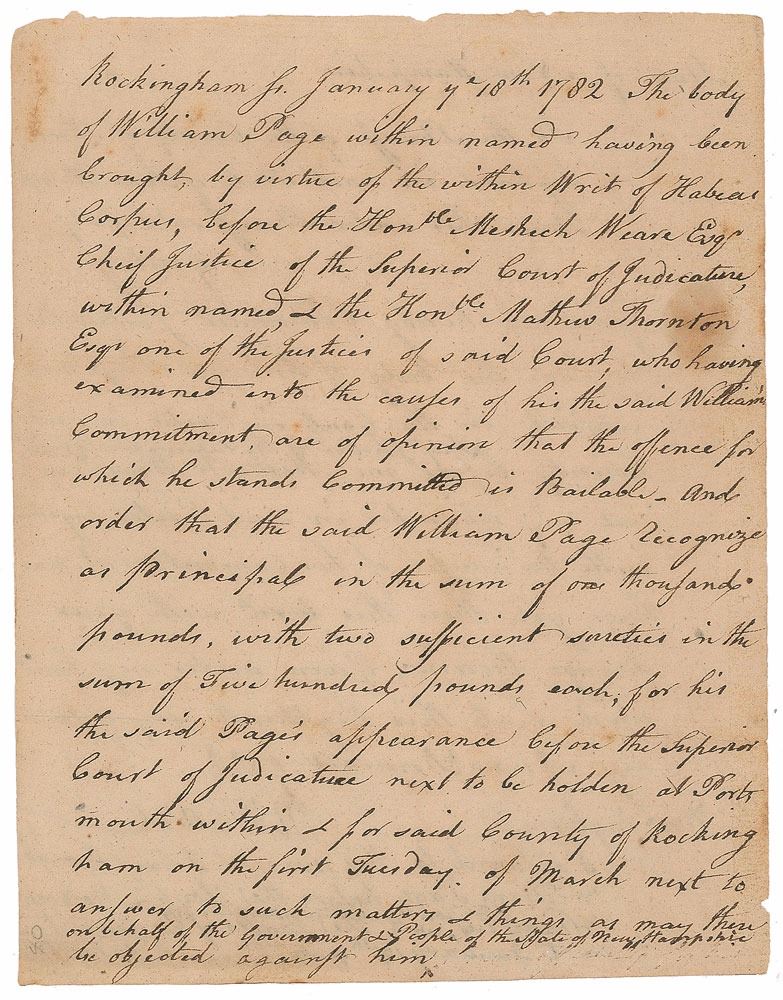 Rockingham ss. January ye 18th 1782 The body
of William Page within named having been
brought, by virtue of the within Writ of Habeas
Corpus, before the Honble Meshech Weare Esqr
Cheif Justice of the Superior Court of Judicature,
within named, & the Honble Mathew Thornton
Esqr one of the Justices of said Court, who having
examined into the causes of his the said William's
Commitment, are of opinion that the offence for
which he stands Committed is Bailable - And
order that the said William Page Recognize
as Principal in the sum of one thousand
pounds, with two sufficient sureties in the
sum of Five hundred pounds each, for his
the said Page's appearance before the Superior
Court of Judicature next to be holden at Ports
mouth within & for said County of Rocking
ham on the first Tuesday of March next to
answer to such matters & things as may there
on behalf of the Government & People of the State of New Hampshire
be objected against him